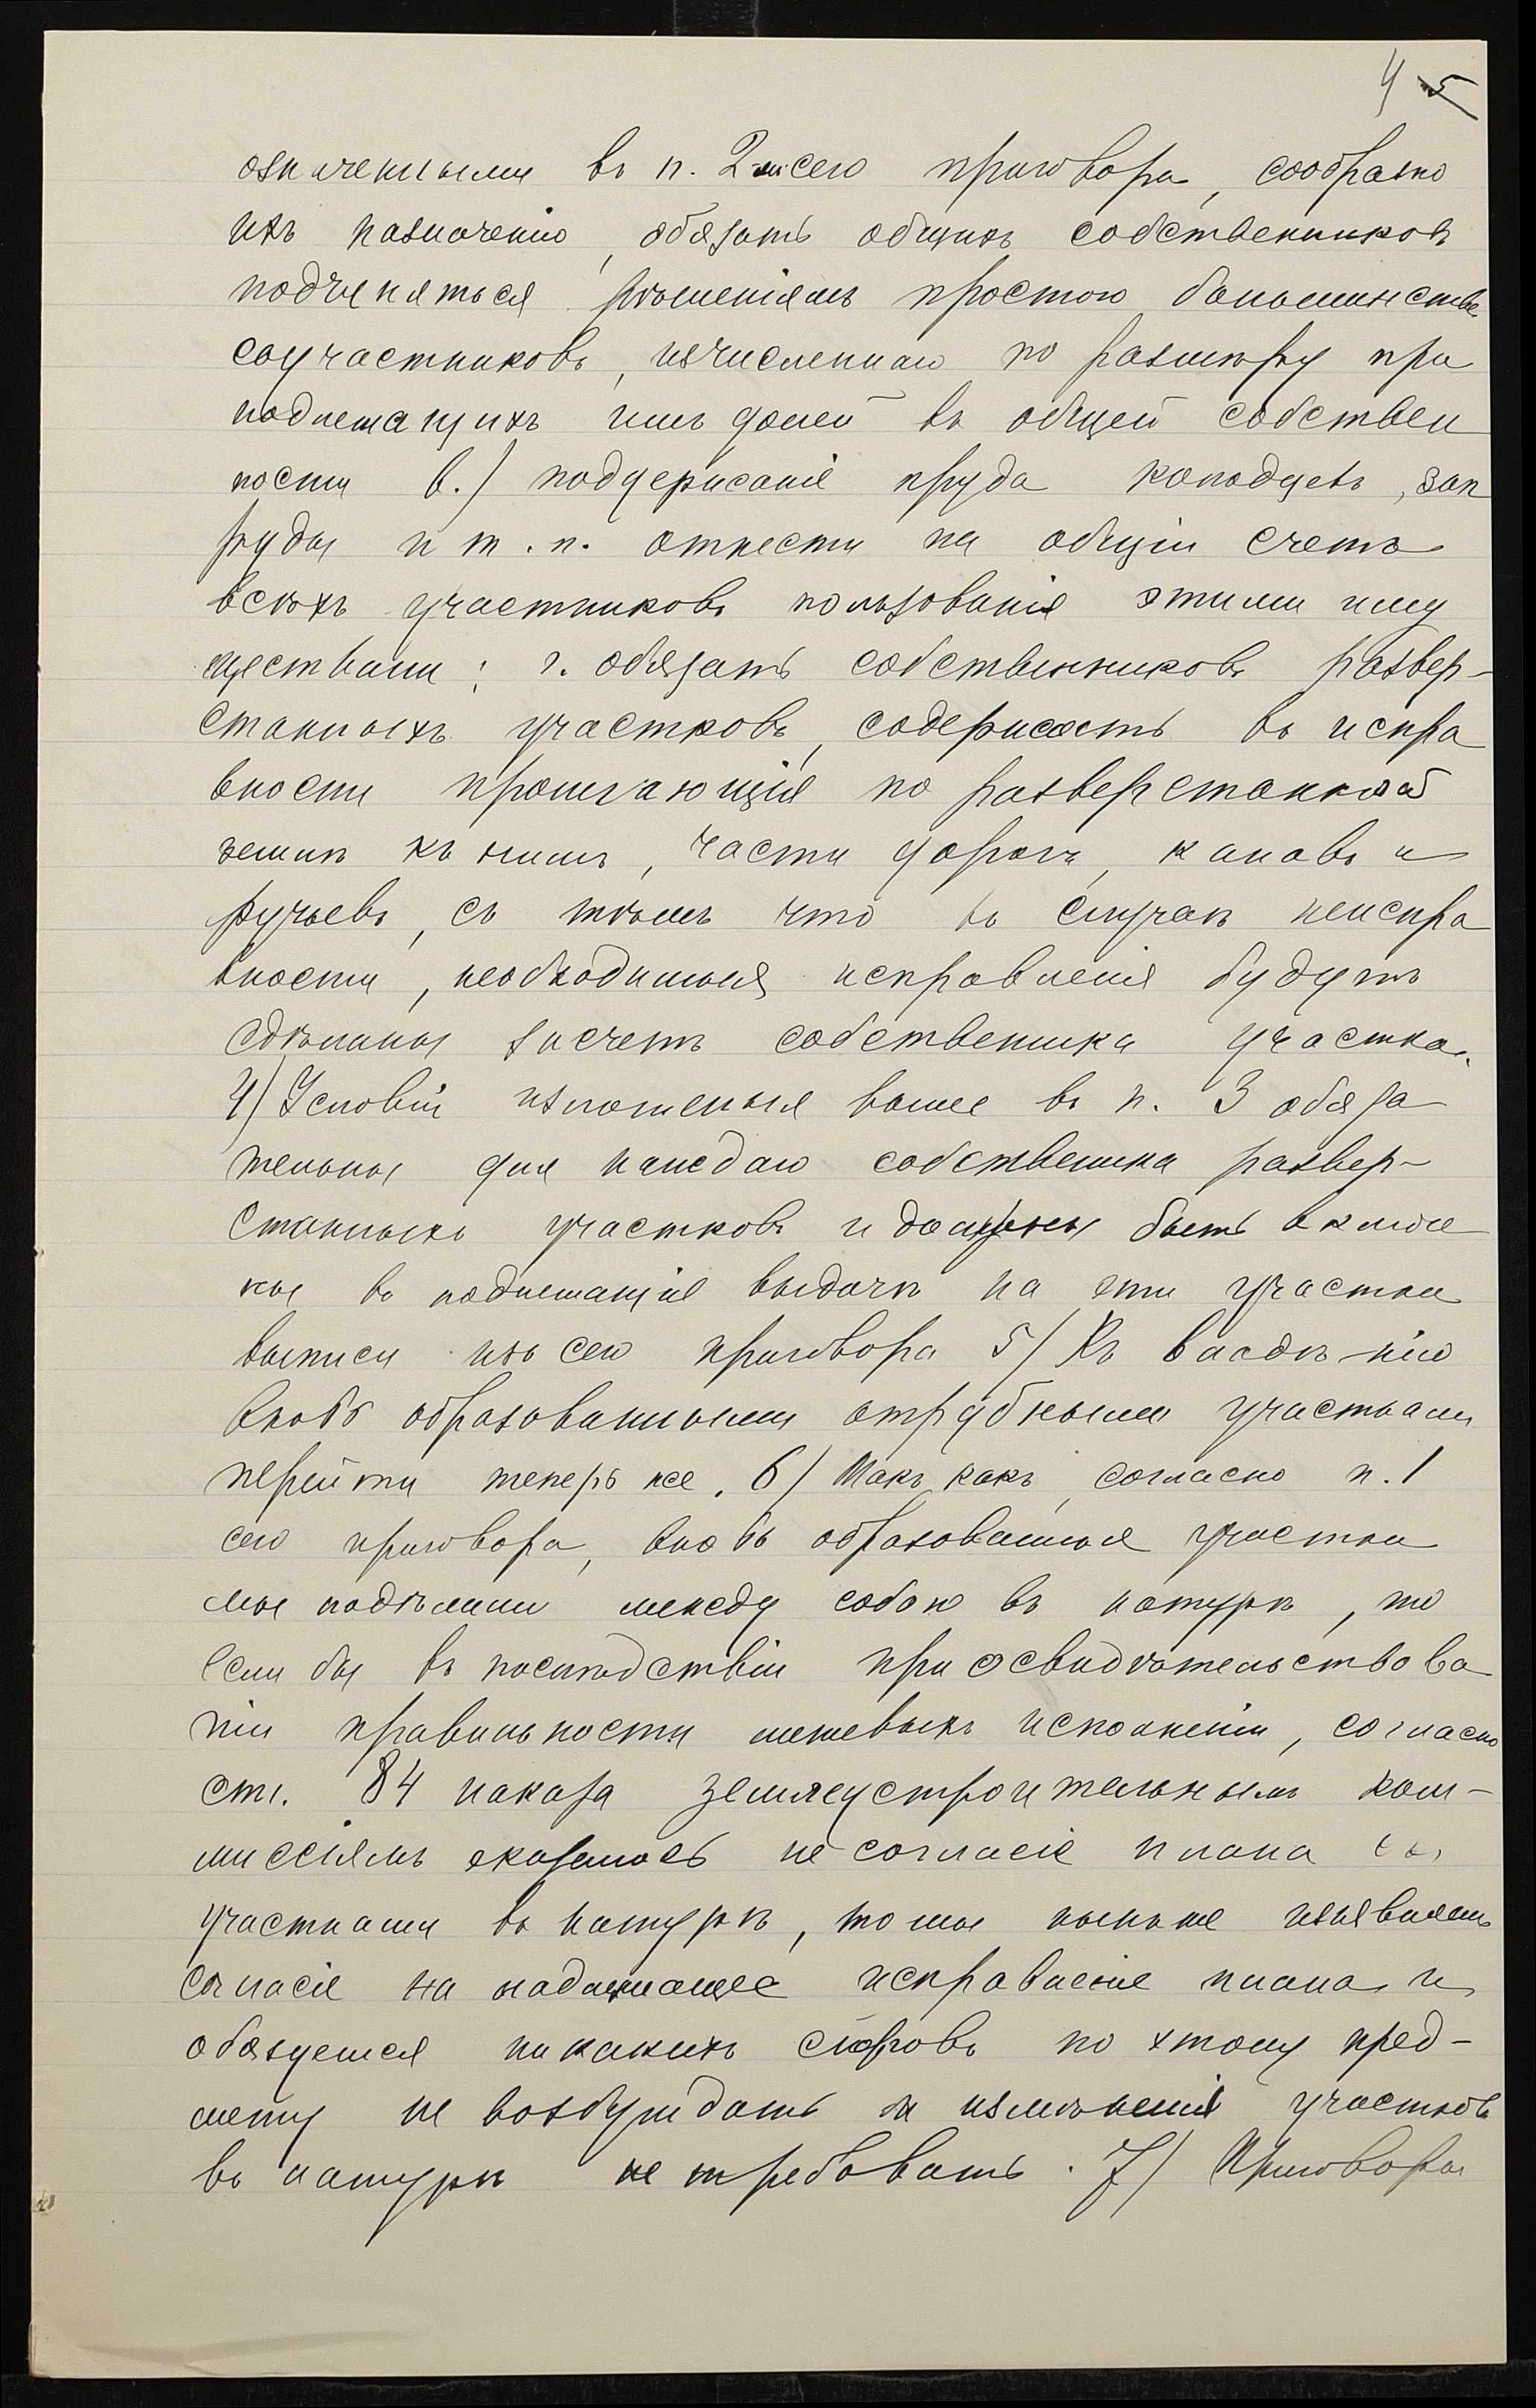 4 5
означенными въ п. 2-мъ сего приговора, сообразно
ихъ назначенію, обязать общихъ собственниковъ
подчиняться рѣшеніямъ простого большинства
соучастниковъ, исчисленнаго по размѣру при
надлежащихъ имъ долей въ общей собствен
ности в.) поддержаніе пруда колодцевъ, зап
руды и т. п. отнести на общій счетъ
всѣхъ участниковъ пользованія этими иму
ществами; г. обязать собственниковъ развер-
станныхъ участковъ, содержать въ испра
вности пролегающія по разверстанной
земли къ нимъ, части дорогъ, канавъ и
ручьевъ, съ тѣмъ что въ случаѣ неиспра
вности, необходимыя исправленія будутъ
сдѣланы засчетъ собственника участка.
4) Условія изложеныя выше въ п. 3 обяза
тельны для каждаго собственика развер-
станныхъ участковъ и должны быть включе
ны въ подлежащія выдачѣ на эти участки
выписи изъ сего приговора 5) Къ владѣнію
вновь образованными отрубными участками
перейти теперь же. 6) Такъ какъ, согласно п. 1
сего приговора, вновь образованныя участки
мы подѣлили между собою въ натурѣ, то
если бы въ послѣдствіи при освидѣтельствова
ніи правильности межевыхъ исполненій, согласно
ст. 84 наказа землеустроительнымъ ком-
миссіямъ оказалось не согласіе плана съ
участками въ натурѣ, то мы нынѣ же изъявляемъ
согласіе на надлежащее исправленіе плана и
обязуемся никакихъ споровъ по этому пред-
мету не возбуждать и измѣненія участковъ
въ натурѣ не требовать. 7) Приговоръ